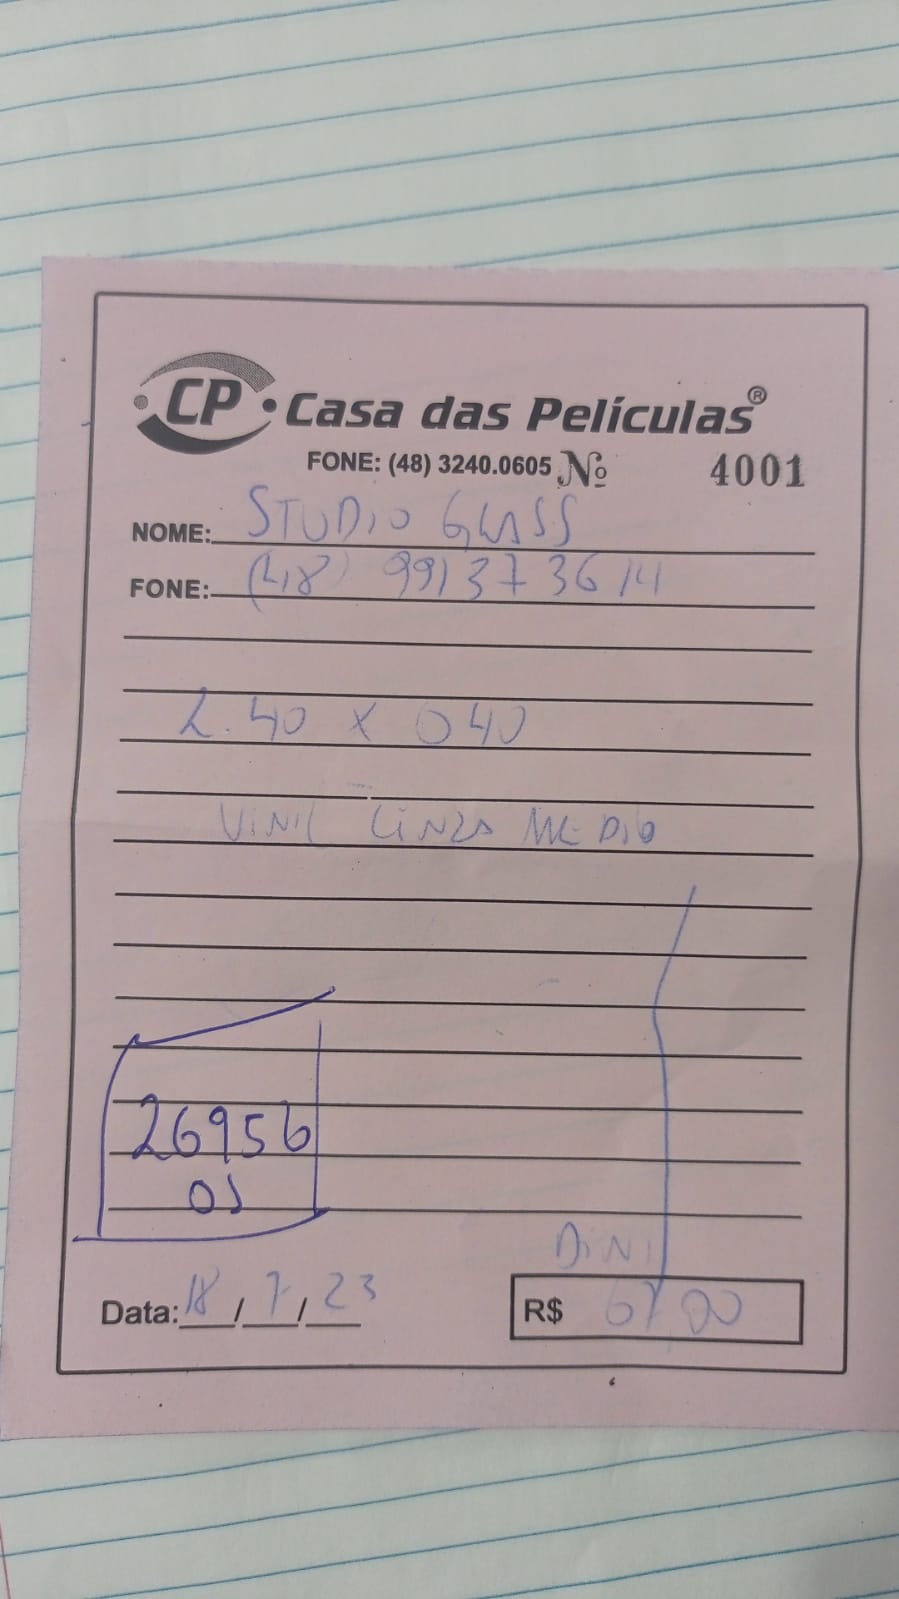 CP Casa das Películas®
FONE: (48) 3240.0605 Nº 4001
NOME: STUDIO GLASS
FONE: (48) 991373614
2.40 x 040
VINIL CINZA MEDIO
26956
OS
DINI
Data: 18/7/23 R$ 67 00